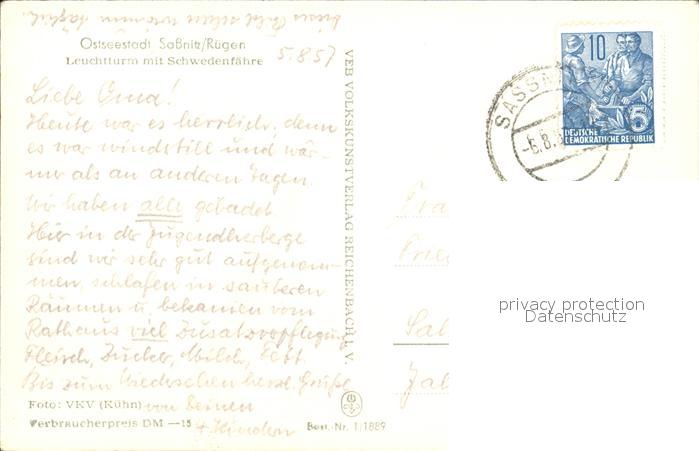 dieses Bild sehen wir nun täglich.
Ostseestadt Saßnitz/Rügen
Leuchtturm mit Schwedenfähre
5.8.57
Liebe Oma!
Heute war es herrlich, denn
es war windstill und wär-
mer als an anderen Tagen.
Wir haben alle gebadet.
Hier in der Jugendherberge
sind wir sehr gut aufgenom-
men, schlafen in sauberen
Räumen u. bekamen vom
Rathaus viel Zusatzverpflegung
Fleisch, Zucker, Milch, Fett.
Bis zum Wiedersehen herzl. Grüße
von Deinen
4 Kindern
Foto: VKV (Kühn)
Verbraucherpreis DM —15
Best.-Nr. 1/1889
VEB VOLKSKUNSTVERLAG REICHENBACH I. V.
10
5
DEUTSCHE
DEMOKRATISCHE REPUBLIK
SASSN
-6.8.
Fra
Frie
Sal
Jal
privacy protection
Datenschutz